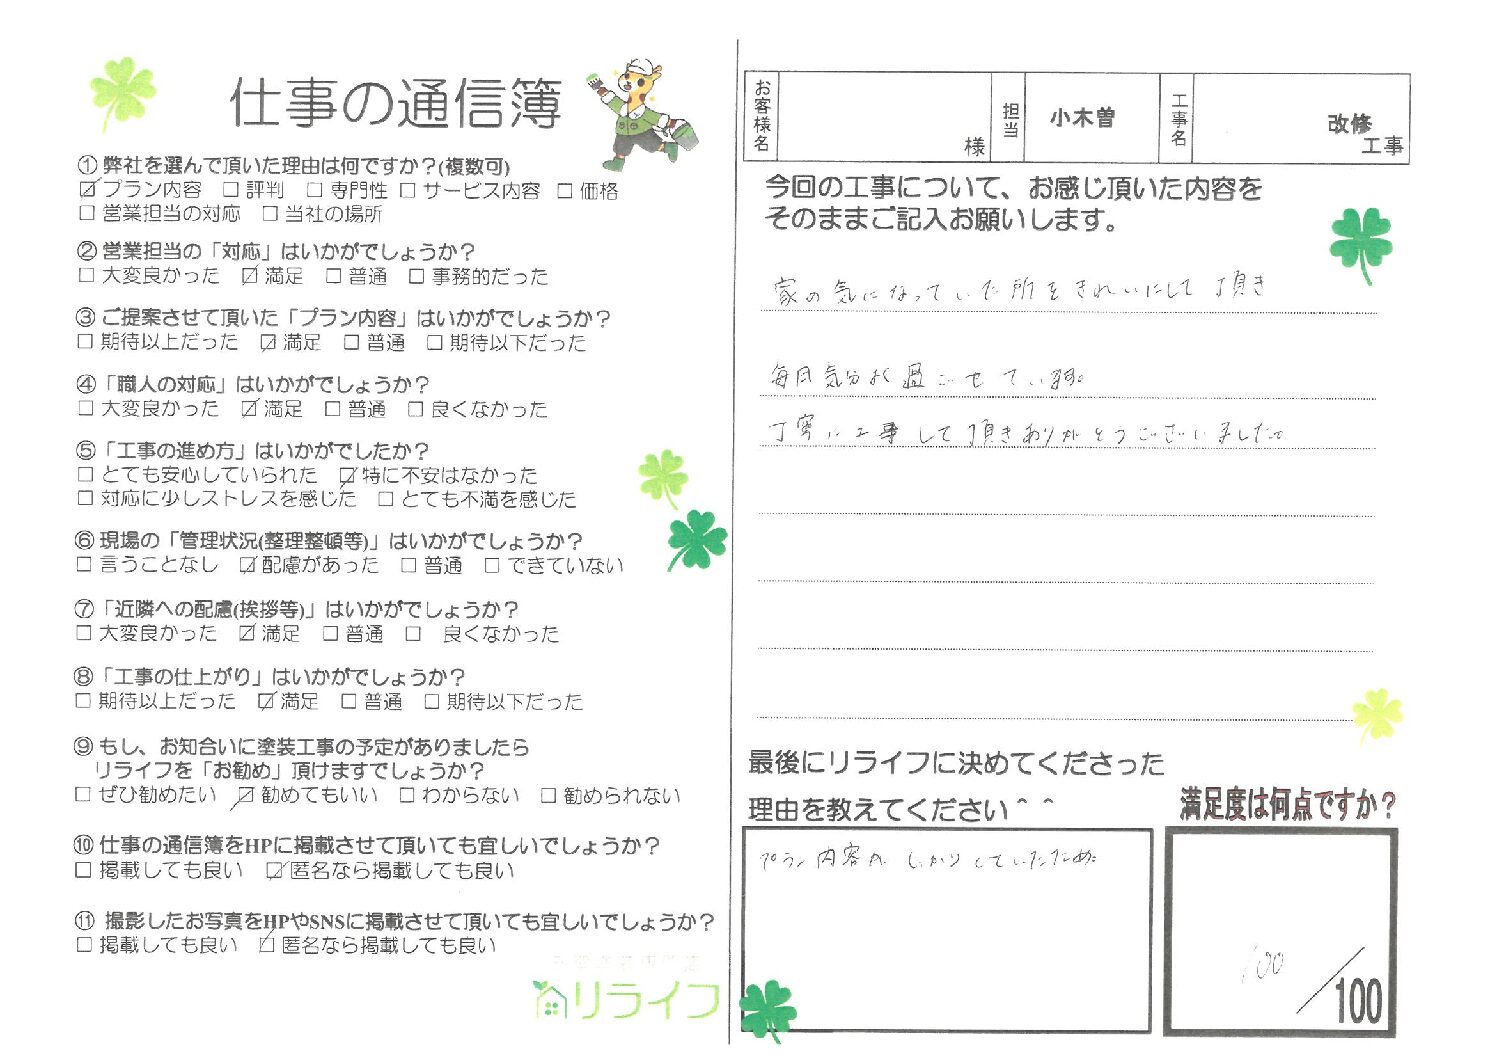 仕事の通信簿
① 弊社を選んで頂いた理由は何ですか？(複数可)
☑プラン内容 □ 評判 □ 専門性 □ サービス内容 □ 価格
□ 営業担当の対応 □ 当社の場所
② 営業担当の「対応」はいかがでしょうか？
□ 大変良かった ☑ 満足 □ 普通 □ 事務的だった
③ ご提案させて頂いた「プラン内容」はいかがでしょうか？
□ 期待以上だった ☑ 満足 □ 普通 □ 期待以下だった
④「職人の対応」はいかがでしょうか？
□ 大変良かった ☑ 満足 □ 普通 □ 良くなかった
⑤「工事の進め方」はいかがでしたか？
□ とても安心していられた ☑ 特に不安はなかった
□ 対応に少しストレスを感じた □ とても不満を感じた
⑥ 現場の「管理状況(整理整頓等)」はいかがでしょうか？
□ 言うことなし ☑ 配慮があった □ 普通 □ できていない
⑦「近隣への配慮(挨拶等)」はいかがでしょうか？
□ 大変良かった ☑ 満足 □ 普通 □ 良くなかった
⑧「工事の仕上がり」はいかがでしょうか？
□ 期待以上だった ☑ 満足 □ 普通 □ 期待以下だった
⑨ もし、お知合いに塗装工事の予定がありましたら
リライフを「お勧め」頂けますでしょうか？
□ ぜひ勧めたい ☑ 勧めてもいい □ わからない □ 勧められない
⑩ 仕事の通信簿をHPに掲載させて頂いても宜しいでしょうか？
□ 掲載しても良い ☑ 匿名なら掲載しても良い
⑪ 撮影したお写真をHPやSNSに掲載させて頂いても宜しいでしょうか？
□ 掲載しても良い ☑ 匿名なら掲載しても良い
リライフ
お客様名 様 担当 小木曽 工事名 改修工事
今回の工事について、お感じ頂いた内容を
そのままご記入お願いします。
家の気になっていた所をきれいにして頂き
毎日気分よく過ごせています。
丁寧に工事して頂きありがとうございました。
最後にリライフに決めてくださった
理由を教えてください＾＾
プラン内容がしっかりしていたため。
満足度は何点ですか？
100/100